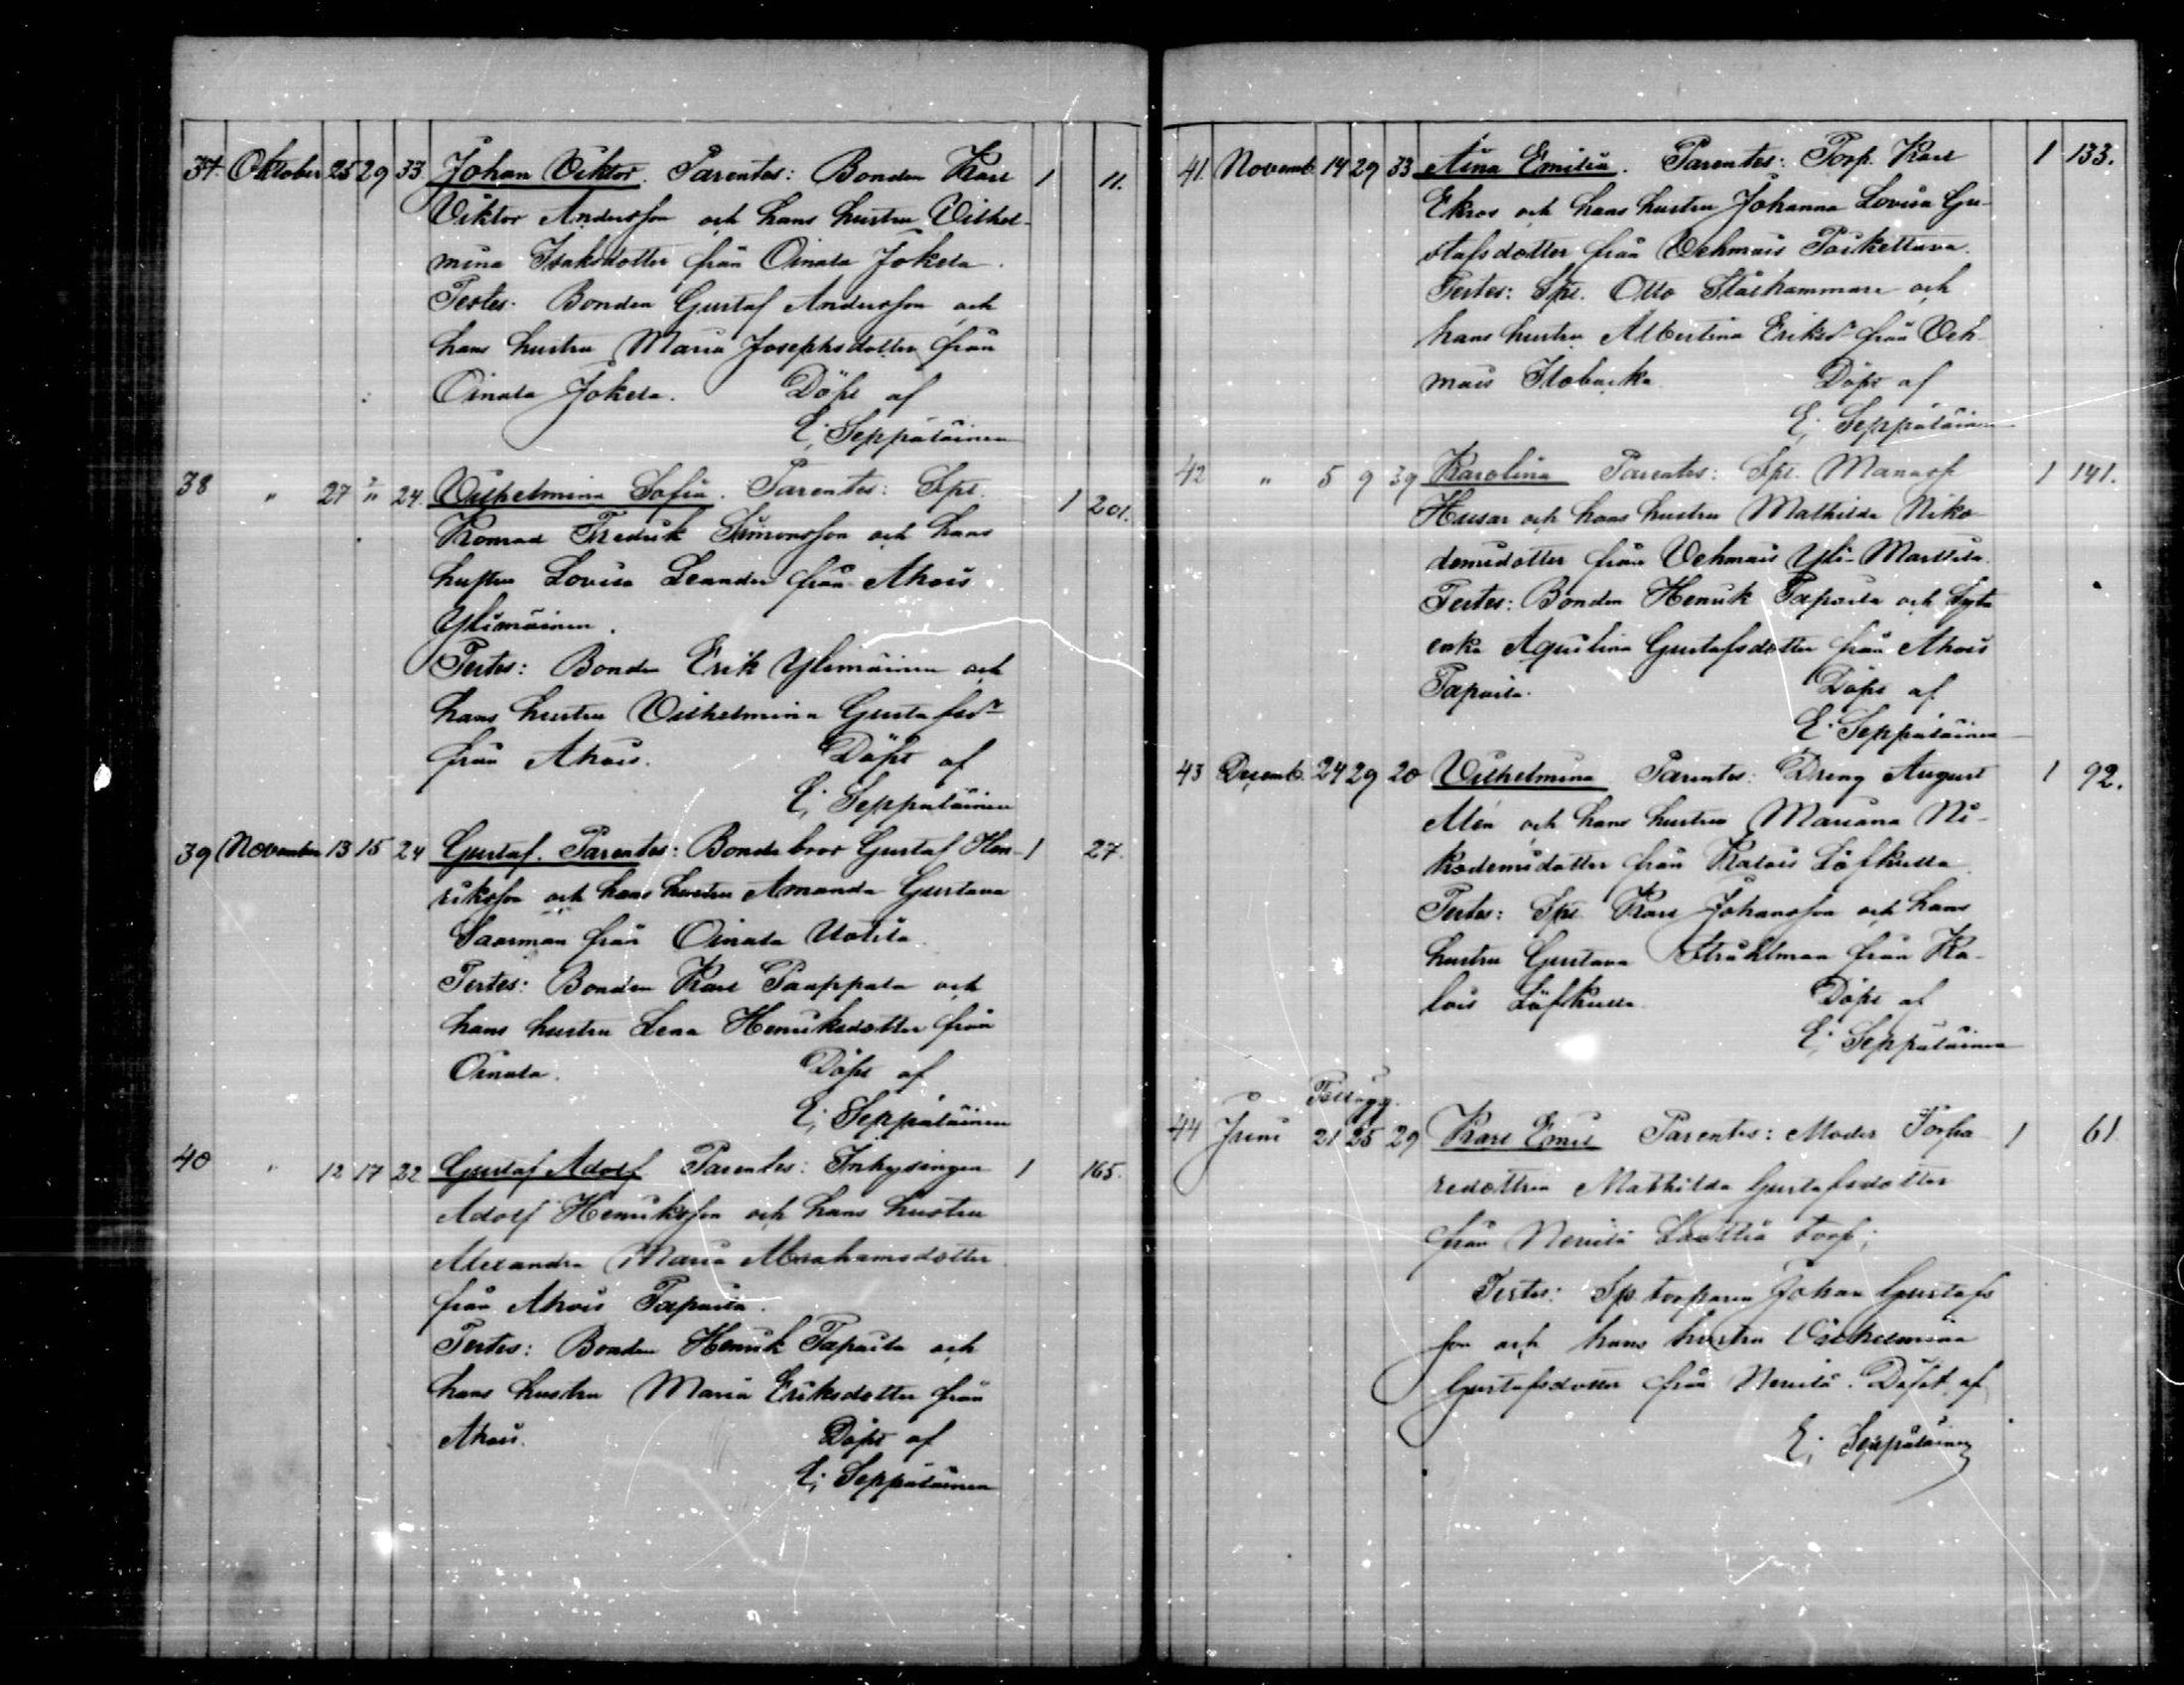 37. Oktober 25 29 33 Johan Viktor. Parentes: Bonden Karl 1 11.
Viktor Andersson och hans hustru Vilhel-
mina Isaksdotter från Oinala Jokela.
Testes. Bonden Gustaf Andersson och
hans hustru Maria Josephsdotter från
Oinala Jokela. Döpt af
E; Seppäläinen
38 " 27 " 24. Vilhelmina Sofia. Parentes: Spl. 1 201.
Konrad Fredrik Simonsson och hans
hustru Lovisa Leander från Ahois
Ylimäinen.
Testes: Bonden Erik Ylimäinen och
hans hustru Vilhelmina Gustafsdr
från Ahois. Döpt af
E; Seppäläinen
39 November 13 15 24 Gustaf. Parentes: Bonde bror Gustaf Hen- 1 27.
riksson och hans hustru Amanda Gustava
Saarman från Oinala Uotila.
Testes: Bonden Karl Paappala och
hans hustru Lena Henriksdotter från
Oinala. Döpt af
E; Seppäläinen
40 " 12 17 22 Gustaf Adolf Parentes: Inhysingen 1 165.
Adolf Henriksson och hans hustru
Alexandra Maria Abrahamsdotter
från Ahois Tapaila.
Testes: Bonden Henrik Tapaila och
hans hustru Maria Eriksdotter från
Ahois. Döpt af
E; Seppäläinen
41. Novemb. 14 29 33 Aina Emilia. Parentes: Torp. Karl 1 133.
Ekros och hans hustru Johanna Lovisa Gu-
stafsdotter från Vehmais
Testes: Spl. Otto Stålhammare och
hans hustru Albertina Eriksdr från Veh-
mais Döpt af
E; Seppäläinen
42 " 5 9 39 Karolina Parentes: Spl. 1 141.
Husar och hans hustru Mathilda Niko-
demsdotter från Vehmais Yli-Marttila.
Testes: Bonden Henrik Tapaila och
enka Aqvilina Gustafsdotter från Ahois
Tapaila. Döpt af
E; Seppäläinen
43 Decemb. 24 29 20 Vilhelmina Parentes: Dreng August 1 92.
Alén och hans hustru Mariana Ni-
kodemsdotter från Kalois Löfkulla.
Testes: Spl. Karl Johansson och hans
hustru Gustava Stråhlman från Ka-
lois Löfkulla. Döpt af
E; Seppäläinen
Tillägg.
44 Juni 21 25 29 Karl Emil Parentes: Moder Torpa- 1 61.
redottren Mathilda Gustafsdotter
från torp;
Testes: Sp. torparen Johan Gustafs
son och hans hustru Vilhelmina
Gustafsdotter från Döpt af
E; Seppäläinen